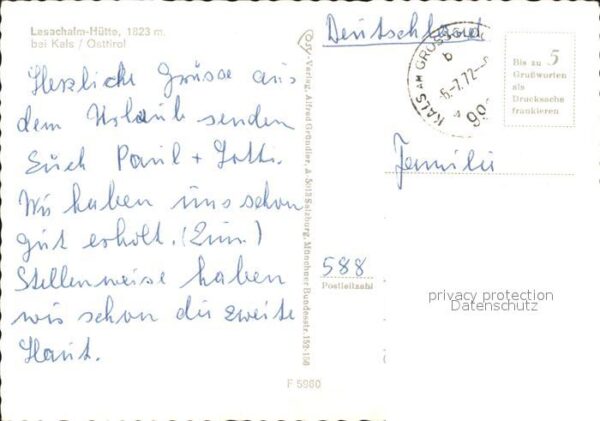 Lesachalm-Hütte, 1823 m.
bei Kals / Osttirol
Herzliche Grüsse aus
dem Urlaub senden
Euch Paul + Lotti.
Wir haben uns schon
gut erholt. (Zim.)
Stellenweise haben
wir schon die zweite
Haut.
Verlag, Alfred Gründler, A 5013 Salzburg, Münchner Bundesstr. 152-156
F 5980
Deutschland
KALS AM GROSSGLOCK
b
-6.-7.72
Bis zu 5
Grußworten
als
Drucksache
frankieren
Familie
588
Postleitzahl
privacy protection
Datenschutz